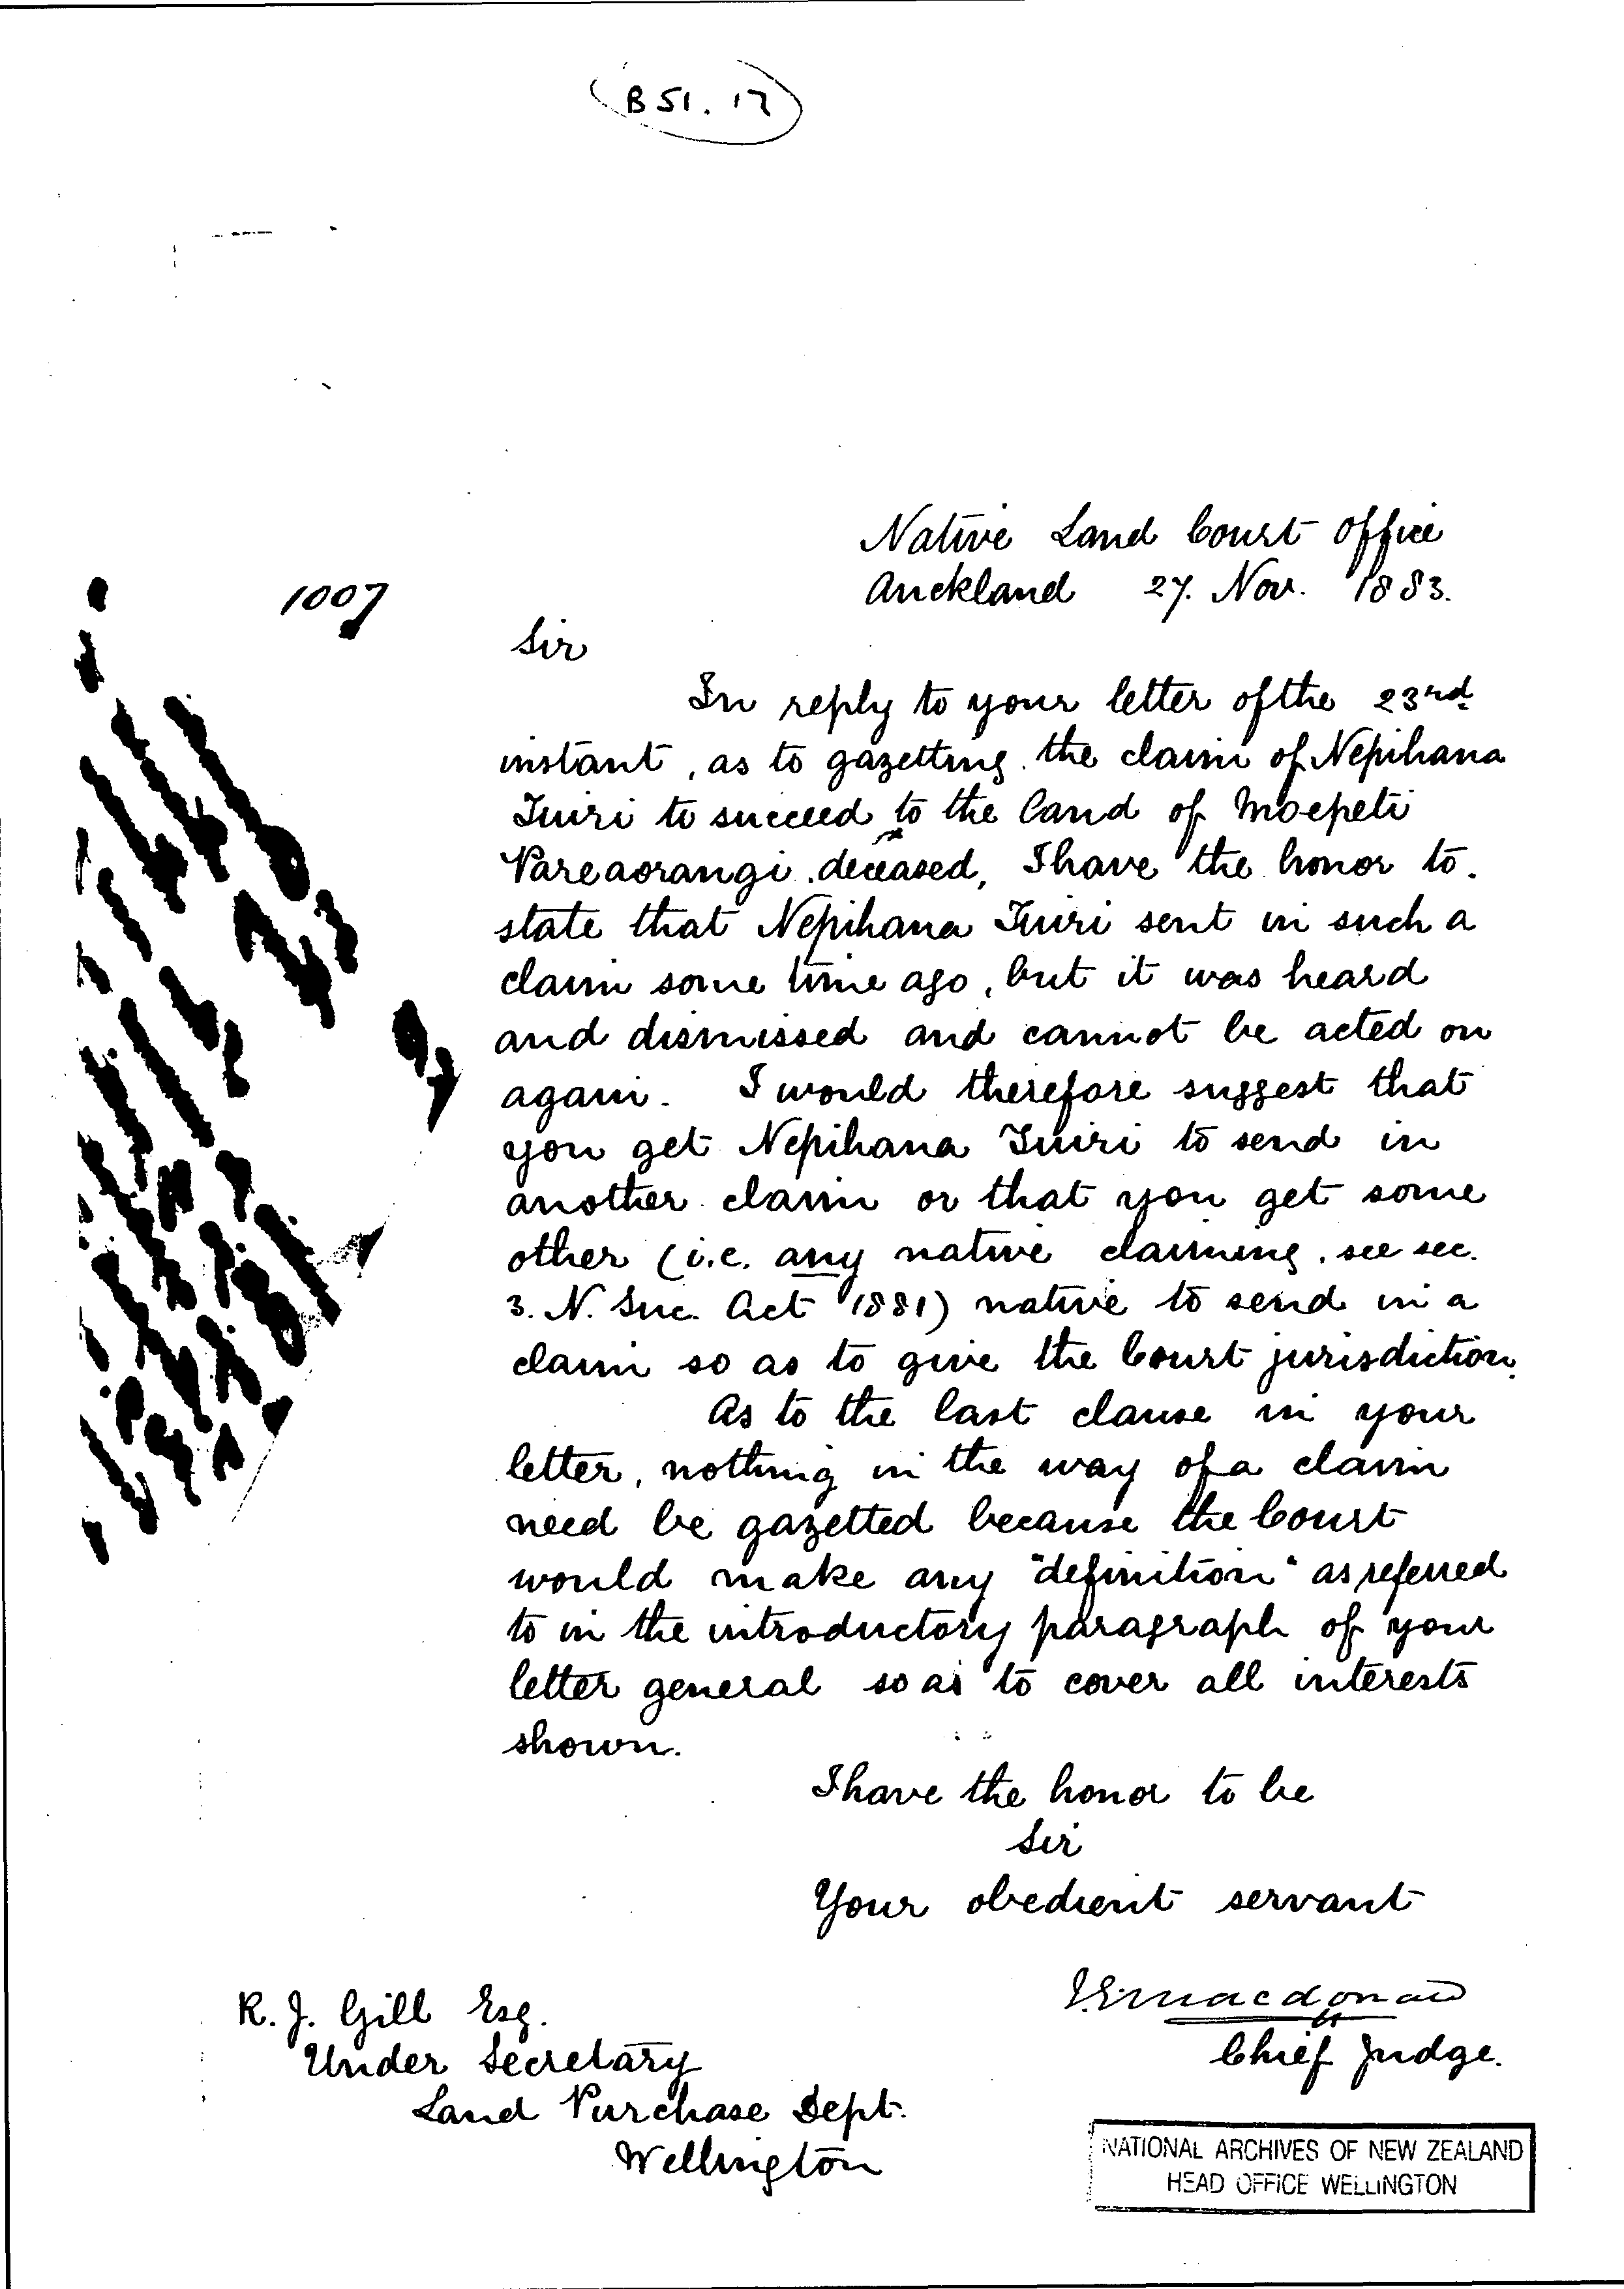 B 51. 17
Native Land Court Office
Auckland 27. Nov. 1883.
1007
Sir
In reply to your letter of the 23rd
instant, as to gazetting the claim of Nepihana
Tuiri to succeed to the land of Moepeti
Pareaorangi deceased, I have the honor to
state that Nepihana Tuiri sent in such a
claim some time ago, but it was heard
and dismissed and cannot be acted on
again. I would therefore suggest that
you get Nepihana Tuiri to send in
another claim or that you get some
other (i.e. any native claiming, see sec.
3. N. Suc. Act 1881) native to send in a
claim so as to give the Court jurisdiction.
As to the last clause in your
letter, nothing in the way of a claim
need be gazetted because the Court
would make any "definition" as referred
to in the introductory paragraph of your
letter general so as to cover all interests
shown.
I have the honor to be
Sir
Your obedient servant
Macdonald
Chief Judge.
R. J. Gill Esq.
Under Secretary
Land Purchase Dept.
Wellington
NATIONAL ARCHIVES OF NEW ZEALAND
HEAD OFFICE WELLINGTON